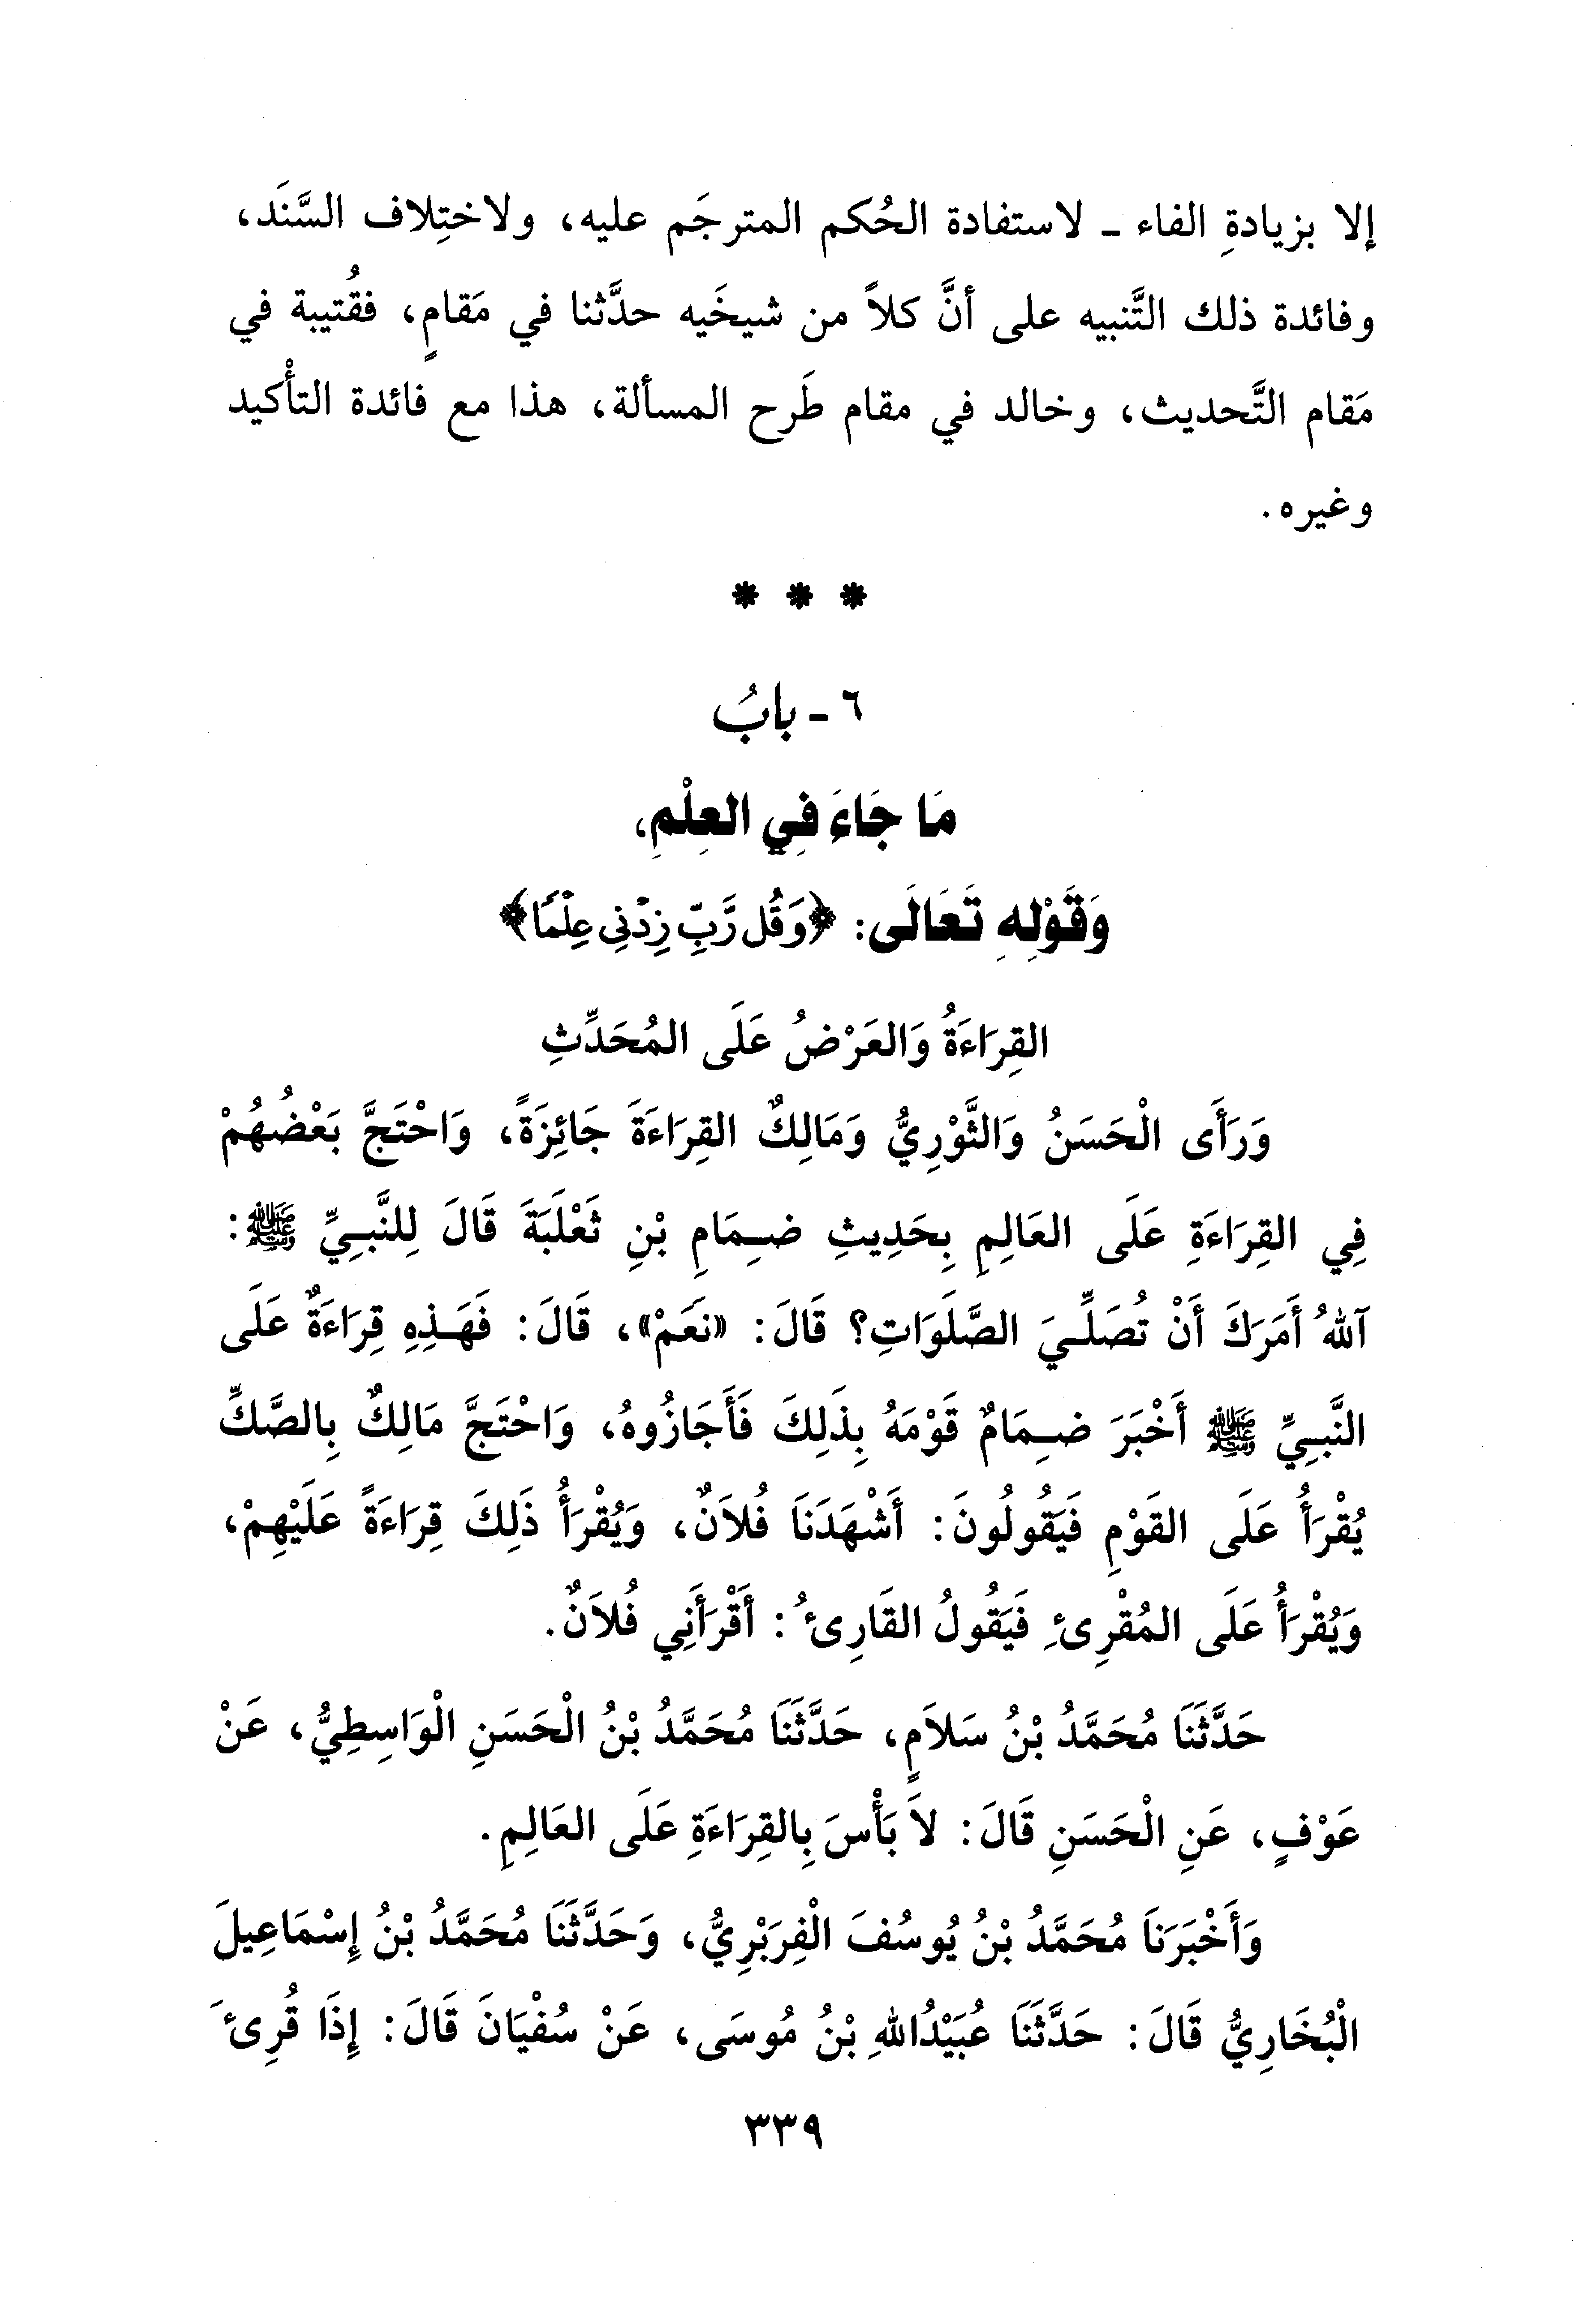 إلا بزيادةِ الفاء ـ لاستفادة الحُكم المترجَم عليه، ولاختِلاف السَّنَد،
وفائدة ذلك التَّنبيه على أنَّ كلاً من شيخَيه حدَّثنا في مَقامٍ، فقُتيبة في
مَقام التَّحديث، وخالد في مقام طَرح المسألة، هذا مع فائدة التأْكيد
وغيره.
* * *
٦ ـ بابُ
مَا جَاءَ فِي العِلْمِ،
وَقَوْلِهِ تَعَالَى: ﴿وَقُل رَّبِّ زِدْنِي عِلْمًا﴾
القِرَاءَةُ وَالعَرْضُ عَلَى المُحَدِّثِ
وَرَأَى الْحَسَنُ وَالثَّوْرِيُّ وَمَالِكٌ القِرَاءَةَ جَائِزَةً، وَاحْتَجَّ بَعْضُهُمْ
فِي القِرَاءَةِ عَلَى العَالِمِ بِحَدِيثِ ضِمَامِ بْنِ ثَعْلَبَةَ قَالَ لِلنَّبِيِّ ﷺ:
آللهُ أَمَرَكَ أَنْ تُصَلِّيَ الصَّلَوَاتِ؟ قَالَ: «نَعَمْ»، قَالَ: فَهَذِهِ قِرَاءَةٌ عَلَى
النَّبِيِّ ﷺ أَخْبَرَ ضِمَامٌ قَوْمَهُ بِذَلِكَ فَأَجَازُوهُ، وَاحْتَجَّ مَالِكٌ بِالصَّكِّ
يُقْرَأُ عَلَى القَوْمِ فَيَقُولُونَ: أَشْهَدَنَا فُلاَنٌ، وَيُقْرَأُ ذَلِكَ قِرَاءَةً عَلَيْهِمْ،
وَيُقْرَأُ عَلَى المُقْرِئِ فَيَقُولُ القَارِئُ: أَقْرَأَنِي فُلاَنٌ.
حَدَّثَنَا مُحَمَّدُ بْنُ سَلاَمٍ، حَدَّثَنَا مُحَمَّدُ بْنُ الْحَسَنِ الْوَاسِطِيُّ، عَنْ
عَوْفٍ، عَنِ الْحَسَنِ قَالَ: لاَ بَأْسَ بِالقِرَاءَةِ عَلَى العَالِمِ.
وَأَخْبَرَنَا مُحَمَّدُ بْنُ يُوسُفَ الْفِرَبْرِيُّ، وَحَدَّثَنَا مُحَمَّدُ بْنُ إِسْمَاعِيلَ
الْبُخَارِيُّ قَالَ: حَدَّثَنَا عُبَيْدُاللهِ بْنُ مُوسَى، عَنْ سُفْيَانَ قَالَ: إِذَا قُرِئَ
٣٣٩